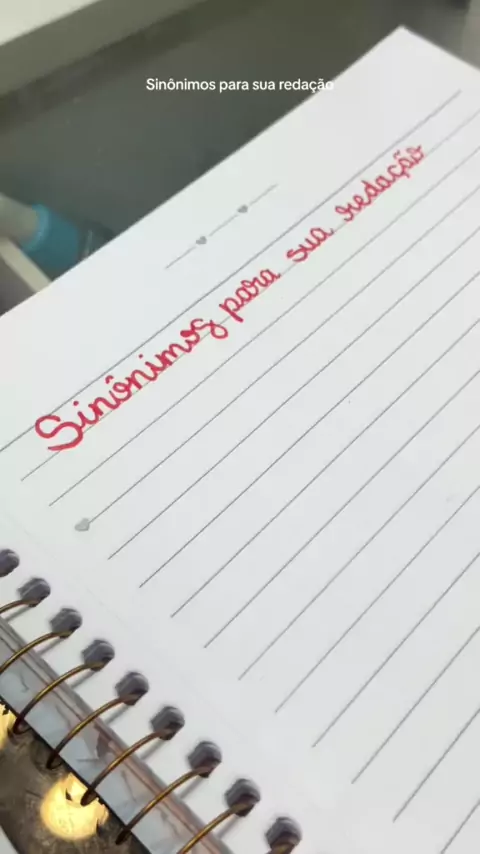 Sinônimos para sua redação
Sinônimos para sua redação